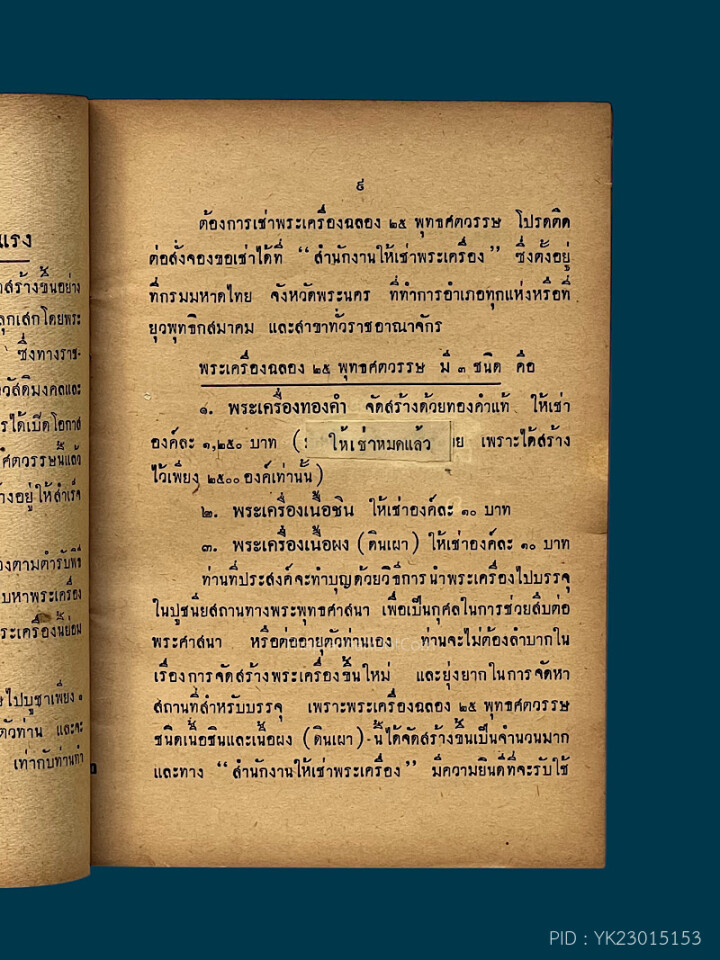 แรง
สร้างขึ้นอย่าง
ลุกเสกโดยพระ
ซึ่งทางราช-
วัสดิมงคลและ
รได้เบิดโอกาส
ศตวรรษนี้แล้ว
างอยู่ให้สำเร็จ
องตามตำรับพิธี
บหาพระเครื่อง
ระเครื่องนี้ย่อม
ไปบูชาเพียง ๑
ตัวท่าน และจะ
เท่ากับท่านทำ
๕
ต้องการเช่าพระเครื่องฉลอง ๒๕ พุทธศตวรรษ โปรดติด
ต่อสั่งจองขอเช่าได้ที่ “สำนักงานให้เช่าพระเครื่อง” ซึ่งตั้งอยู่
ที่กรมมหาดไทย จังหวัดพระนคร ที่ทำการอำเภอทุกแห่งหรือที่
ยุวพุทธิกสมาคม และสาขาทั่วราชอาณาจักร
พระเครื่องฉลอง ๒๕ พุทธศตวรรษ มี ๓ ชนิด คือ
๑. พระเครื่องทองคำ จัดสร้างด้วยทองคำแท้ ให้เช่า
องค์ละ ๑,๒๕๐ บาท ( ให้เช่าหมดแล้ว เพราะได้สร้าง
ไว้เพียง ๒๕๐๐ องค์เท่านั้น)
๒. พระเครื่องเนื้อชิน ให้เช่าองค์ละ ๑๐ บาท
๓. พระเครื่องเนื้อผง (ดินเผา) ให้เช่าองค์ละ ๑๐ บาท
ท่านที่ประสงค์จะทำบุญด้วยวิธีการนำพระเครื่องไปบรรจุ
ในปูชนียสถานทางพระพุทธศาสนา เพื่อเป็นกุศลในการช่วยสืบต่อ
พระศาสนา หรือต่ออายุตัวท่านเอง ท่านจะไม่ต้องลำบากใน
เรื่องการจัดสร้างพระเครื่องขึ้นใหม่ และยุ่งยากในการจัดหา
สถานที่สำหรับบรรจุ เพราะพระเครื่องฉลอง ๒๕ พุทธศตวรรษ
ชนิดเนื้อชินและเนื้อผง (ดินเผา) นี้ได้จัดสร้างขึ้นเป็นจำนวนมาก
และทาง “สำนักงานให้เช่าพระเครื่อง” มีความยินดีที่จะรับใช้
PID : YK23015153